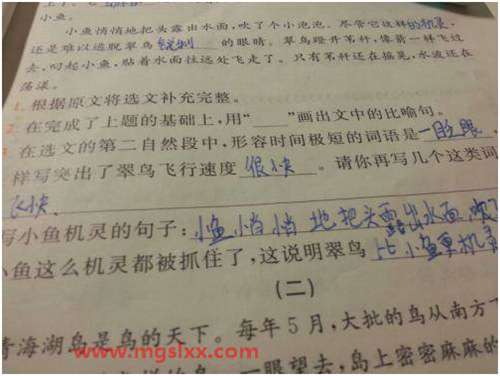 小鱼。
小鱼悄悄地把头露出水面,吹了个小泡泡。尽管它这样的机灵,
还是难以逃脱翠鸟锐利的眼睛。翠鸟蹬开苇秆,像箭一样飞过
去,叼起小鱼,贴着水面往远处飞走了。只有苇秆还在摇晃,水波还在
荡漾。
1. 根据原文将选文补充完整。
2. 在完成了上题的基础上,用“____”画出文中的比喻句。
在选文的第二自然段中,形容时间极短的词语是一眨眼
样写突出了翠鸟飞行速度很快。请你再写几个这类词
飞快
写小鱼机灵的句子:小鱼悄悄地把头露出水面 吹了
小鱼这么机灵都被抓住了,这说明翠鸟比小鱼更机灵
(二)
青海湖鸟岛是鸟的天下。每年5月,大批的鸟从南方
一眼望去,岛上密密麻麻的
www.mgslxx.com